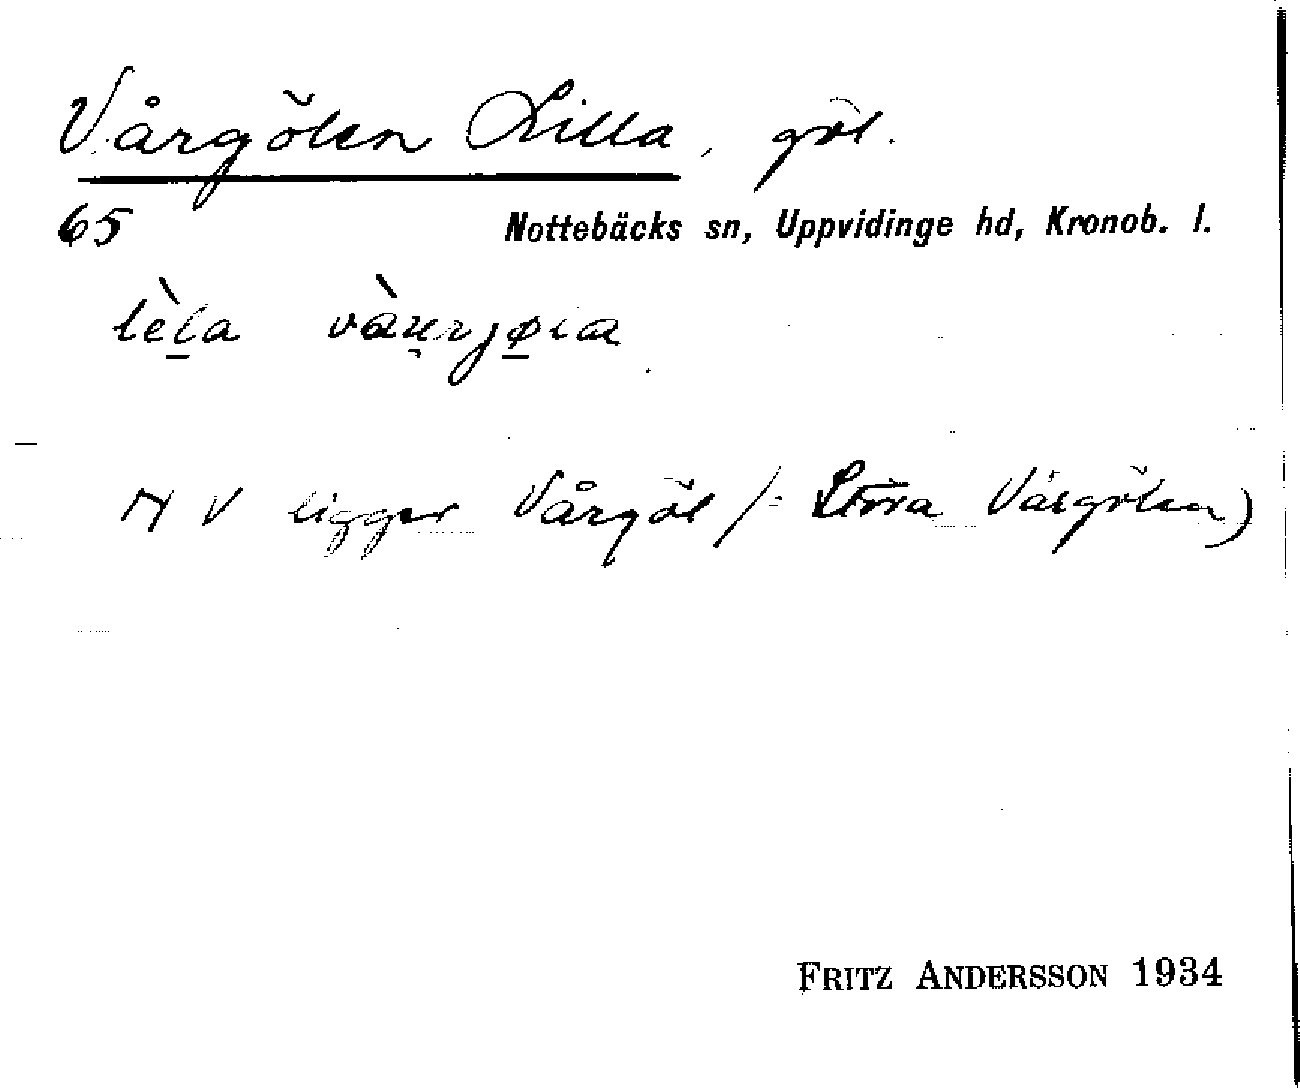 Vårgölen Lilla, göl.
65 Nottebäcks sn, Uppvidinge hd, Kronob. l.
lèla
NV ligger Vårgöl (= Stora Vårgölen)
FRITZ ANDERSSON 1934